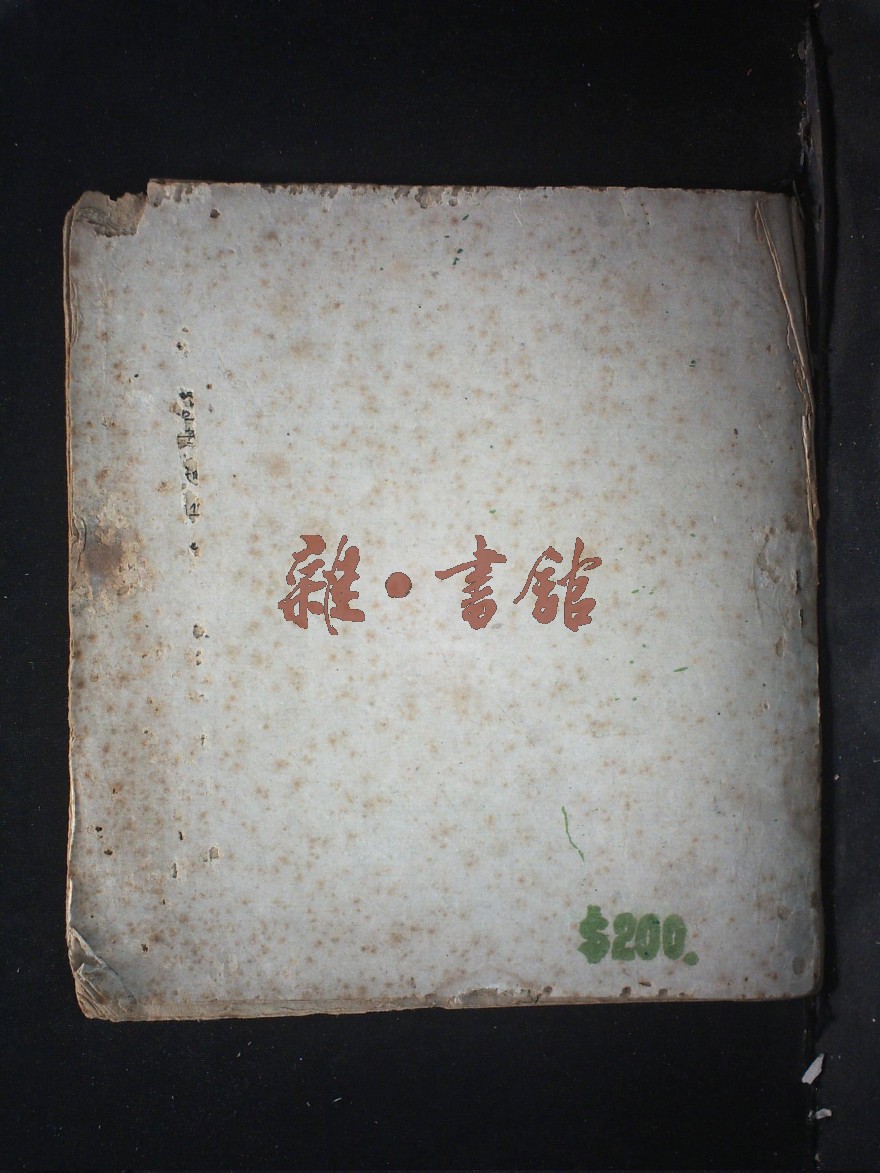 雜·書館
$200.